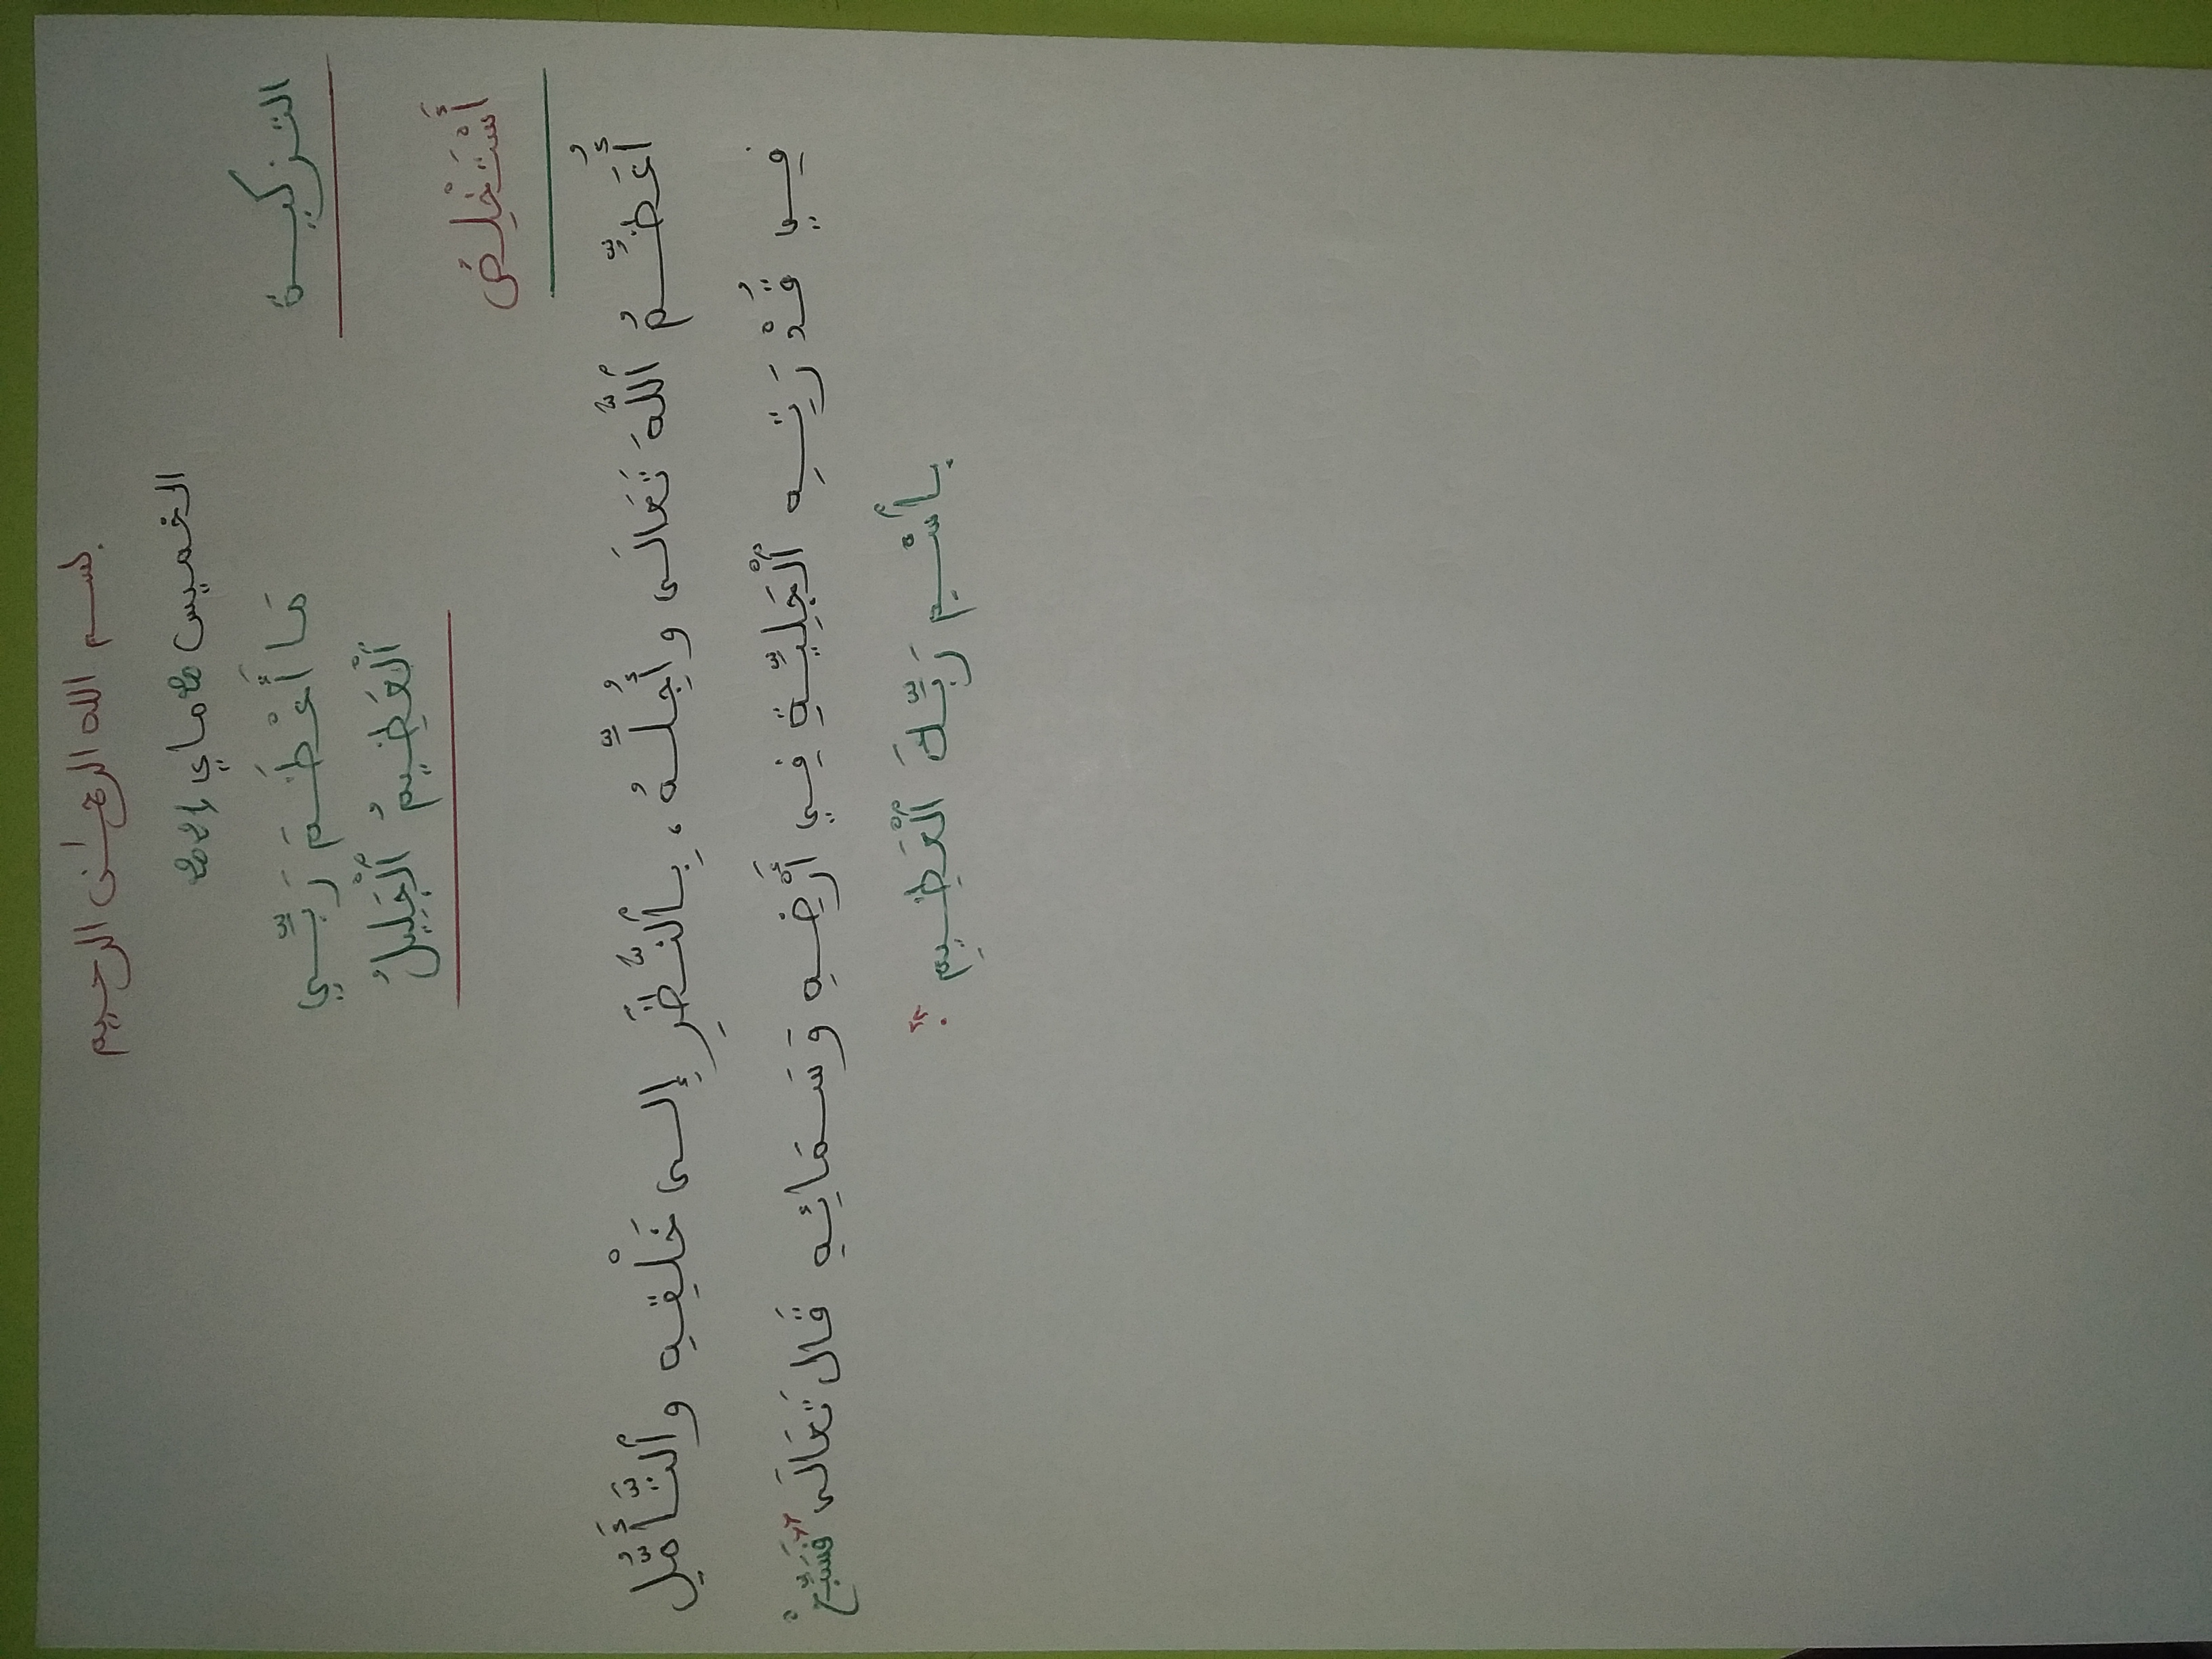 بسم الله الرحمٰن الرحيم
الخميس 20 ماي 2021
التزكية
مَا أَعْظَمَ رَبِّي
ٱلْعَظِيمُ ٱلْجَلِيلُ
أَسْتَخْلِصُ
أُعَظِّمُ ٱللَّهَ تَعَالَى وأُجِلُّهُ، بِٱلنَّظَرِ إلى خَلْقِهِ وٱلتَّأَمُّلِ
فِي قُدْرَتِهِ ٱلْجَلِيَّةِ فِي أَرْضِهِ وَسَمَائِهِ قَال تَعَالَى "فَسَبِّحْ
بٱسْمِ رَبِّكَ ٱلْعَظِيمِ".